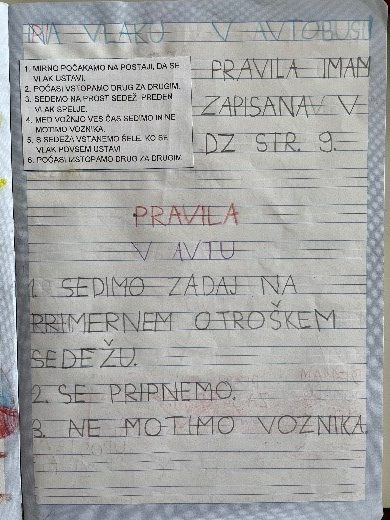 NA VLAKU V AVTOBUSU
1. MIRNO POČAKAMO NA POSTAJI, DA SE
VLAK USTAVI.
2. POČASI VSTOPAMO DRUG ZA DRUGIM.
3. SEDEMO NA PROST SEDEŽ PREDEN
VLAK SPELJE.
4. MED VOŽNJO VES ČAS SEDIMO IN NE
MOTIMO VOZNIKA.
5. S SEDEŽA VSTANEMO ŠELE, KO SE
VLAK POVSEM USTAVI
6. POČASI IZSTOPAMO DRUG ZA DRUGIM.
PRAVILA IMAM
ZAPISANA V
DZ STR. 9.
PRAVILA
V AVTU
1. SEDIMO ZADAJ NA
PRIMERNEM OTROŠKEM
SEDEŽU.
2. SE PRIPNEMO.
3. NE MOTIMO VOZNIKA.